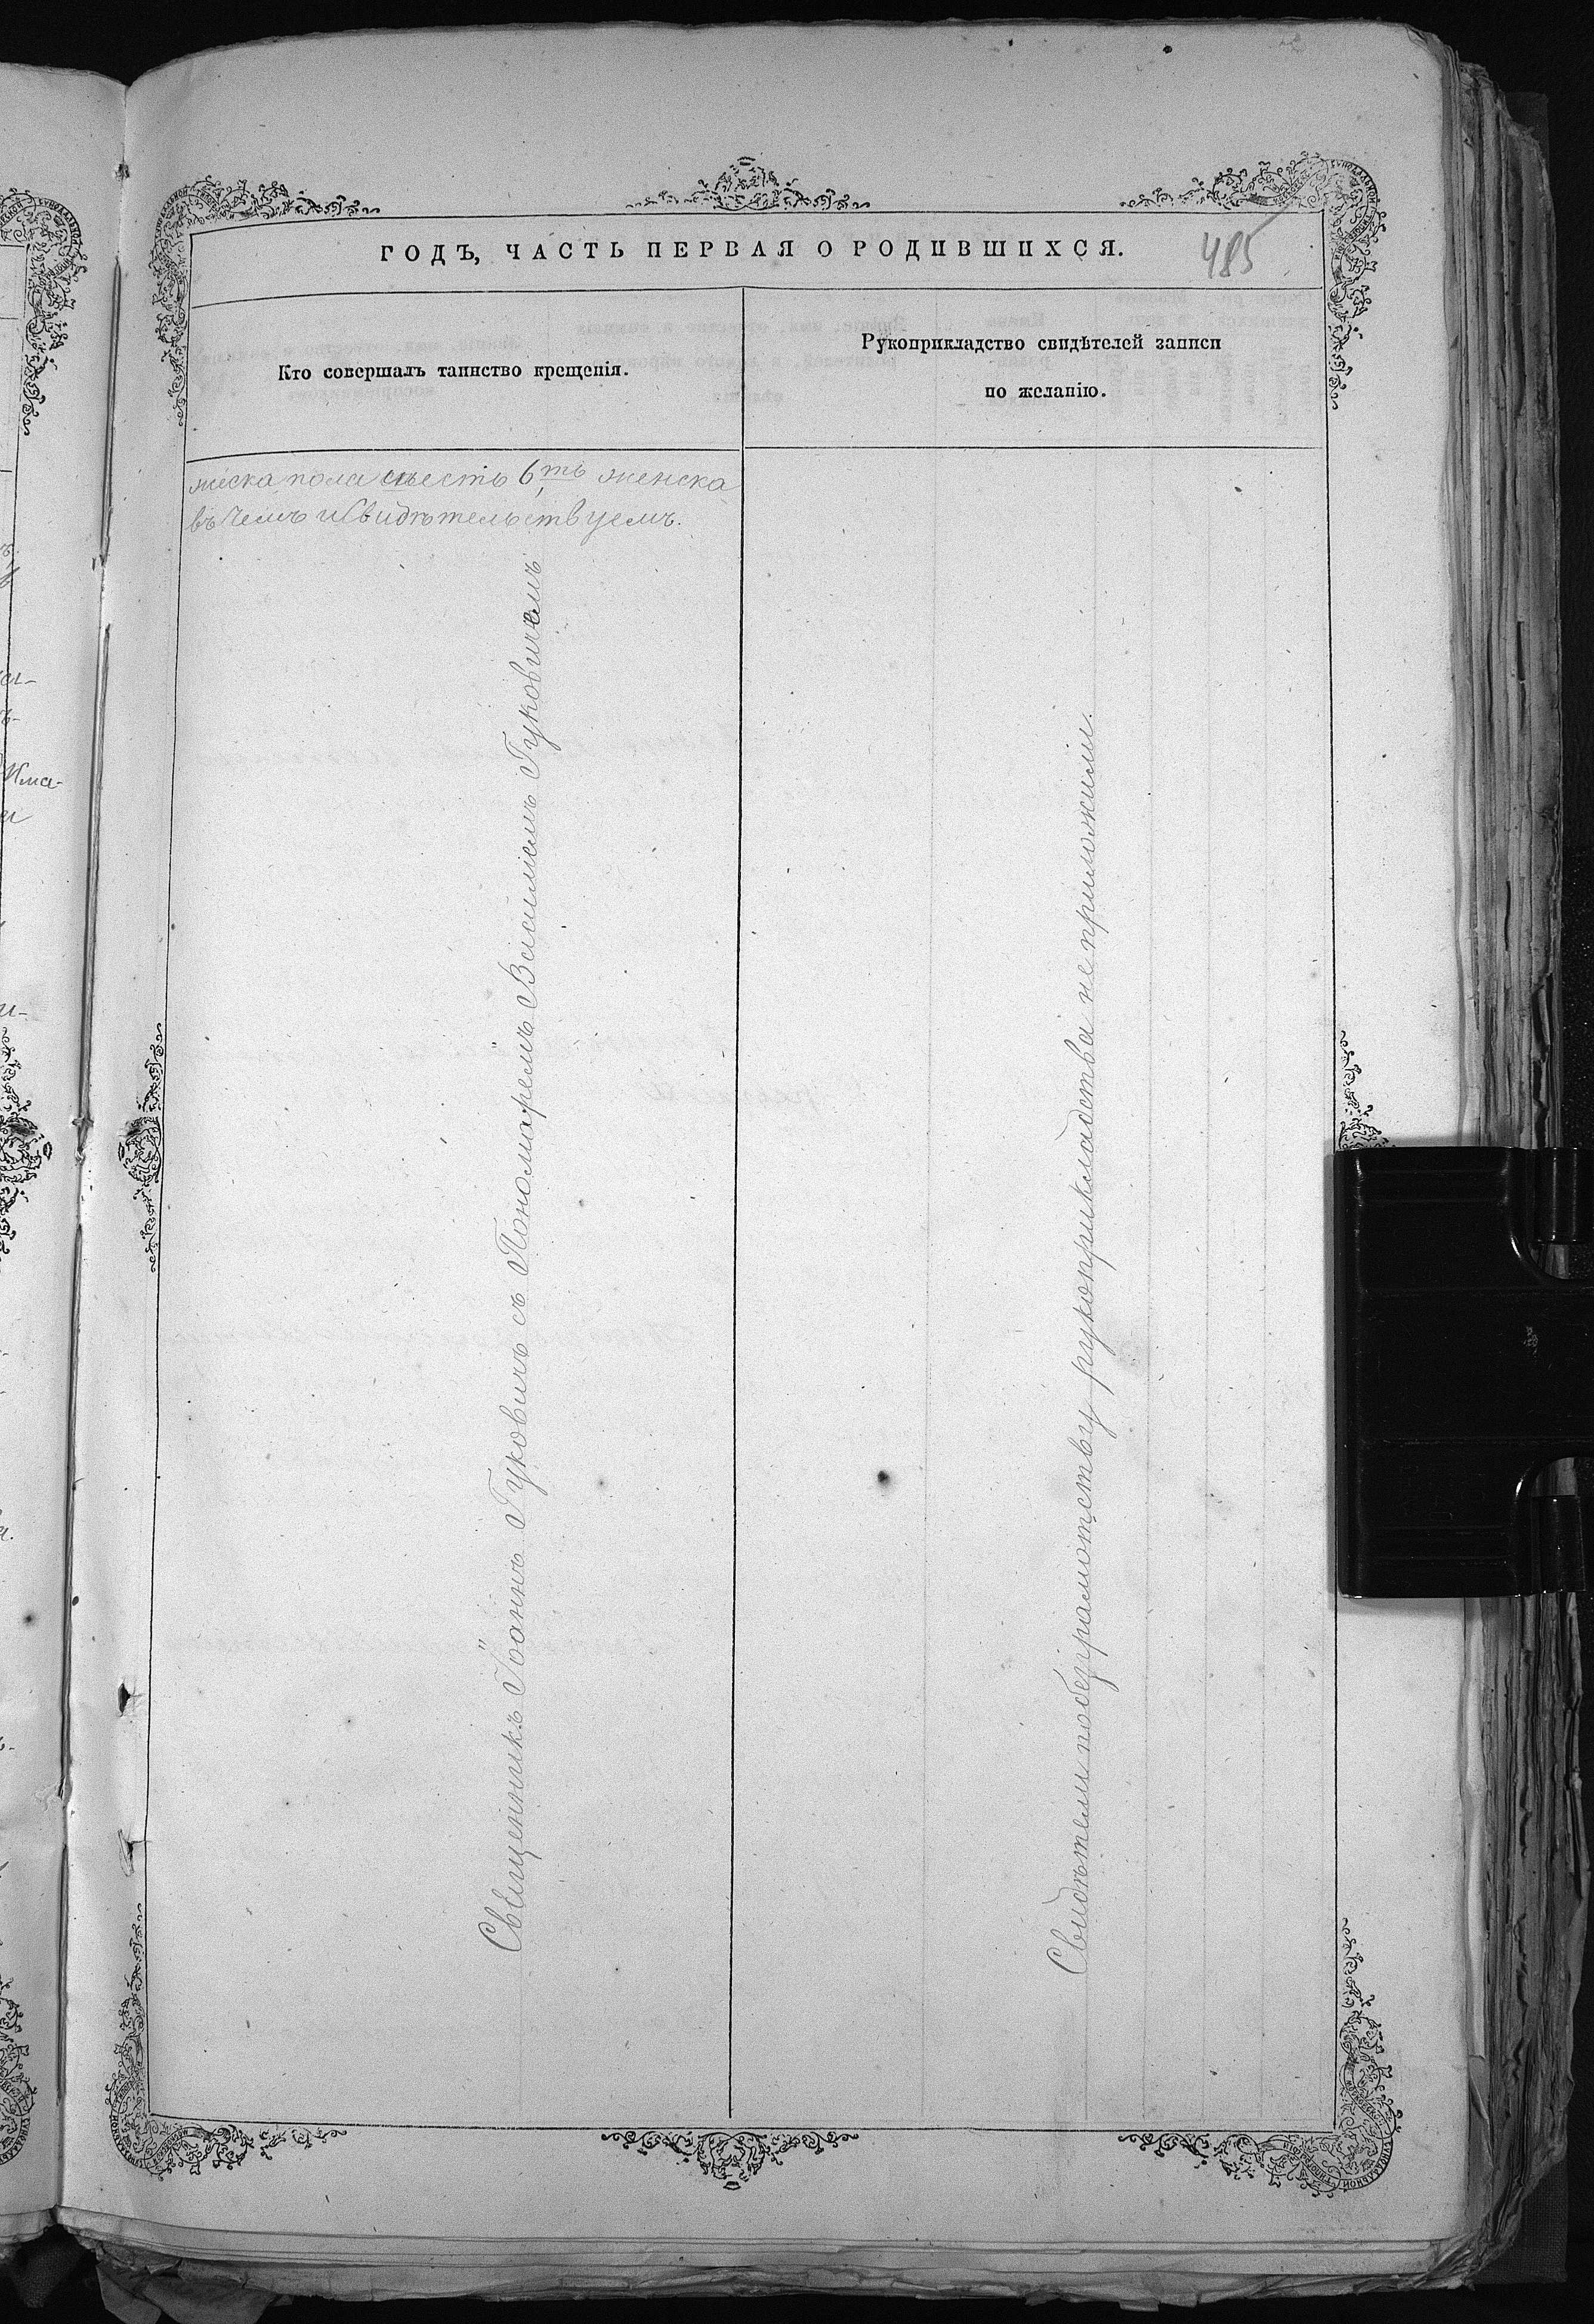 ГОДЪ, ЧАСТЬ ПЕРВАЯ О РОДИВШИХСЯ.
485
Кто совершалъ таинство крещенія.
Рукоприкладство свидѣтелей записи
по желанію.
жеска пола шесть 6,ть женска
въ чемъ и свидѣтельствуемъ.
Священникъ Іоаннъ Гуковичъ съ Пономаремъ Василіемъ Гуковичемъ
Свидѣтели по безграмотству рукоприкладства не приложили.